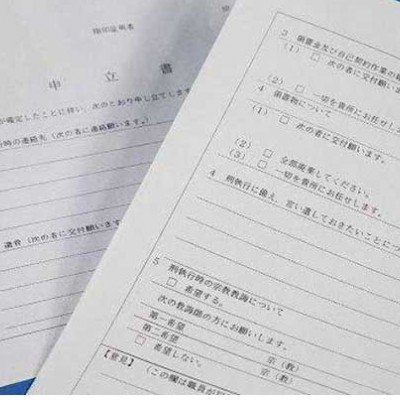 指印証明者
申立書
が確定したことに伴い、次のとおり申し立てします
行時の連絡先（次の者に連絡願います。）
遺骨（次の者に交付願います
3 領置金及び自己契約作業の
(1) □ 次の者に交付願います。
(2) □ 一切を貴所にお任せしま
4 領置物について
(1) □ 次の者に交付願います。
(2) □ 全部廃棄してください。
(3) □ 一切を貴所にお任せします。
4 刑執行に備え、言い遺しておきたいことにつ
5 刑執行時の宗教教誨について
□ 希望する。
次の教誨師の方にお願いします。
第一希望 宗（教）
第二希望 宗（教）
□ 希望しない。
【意見】
（この欄は職員が記